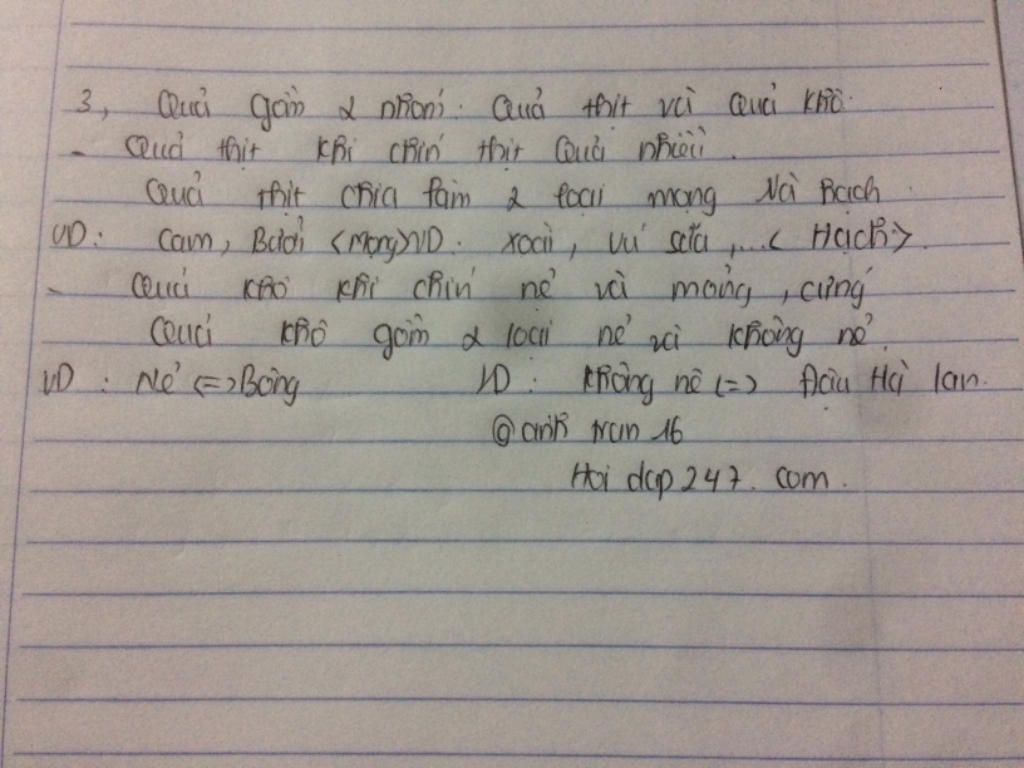 3, Quả gồm 2 nhóm: Quả thịt và Quả khô.
- Quả thịt khi chín thịt Quả nhiều.
Quả thịt chia làm 2 loại mọng và Hạch.
VD: Cam, Bưởi <Mọng> VD. Xoài, vú sữa,...< Hạch>.
- Quả khô khi chín nẻ và mỏng, cứng
Quả khô gồm 2 loại nẻ và không nẻ.
VD: Nẻ <=> Bông VD: không nẻ <=> Đậu Hà lan.
@ anh tran 16
Hoi dap 247. com.